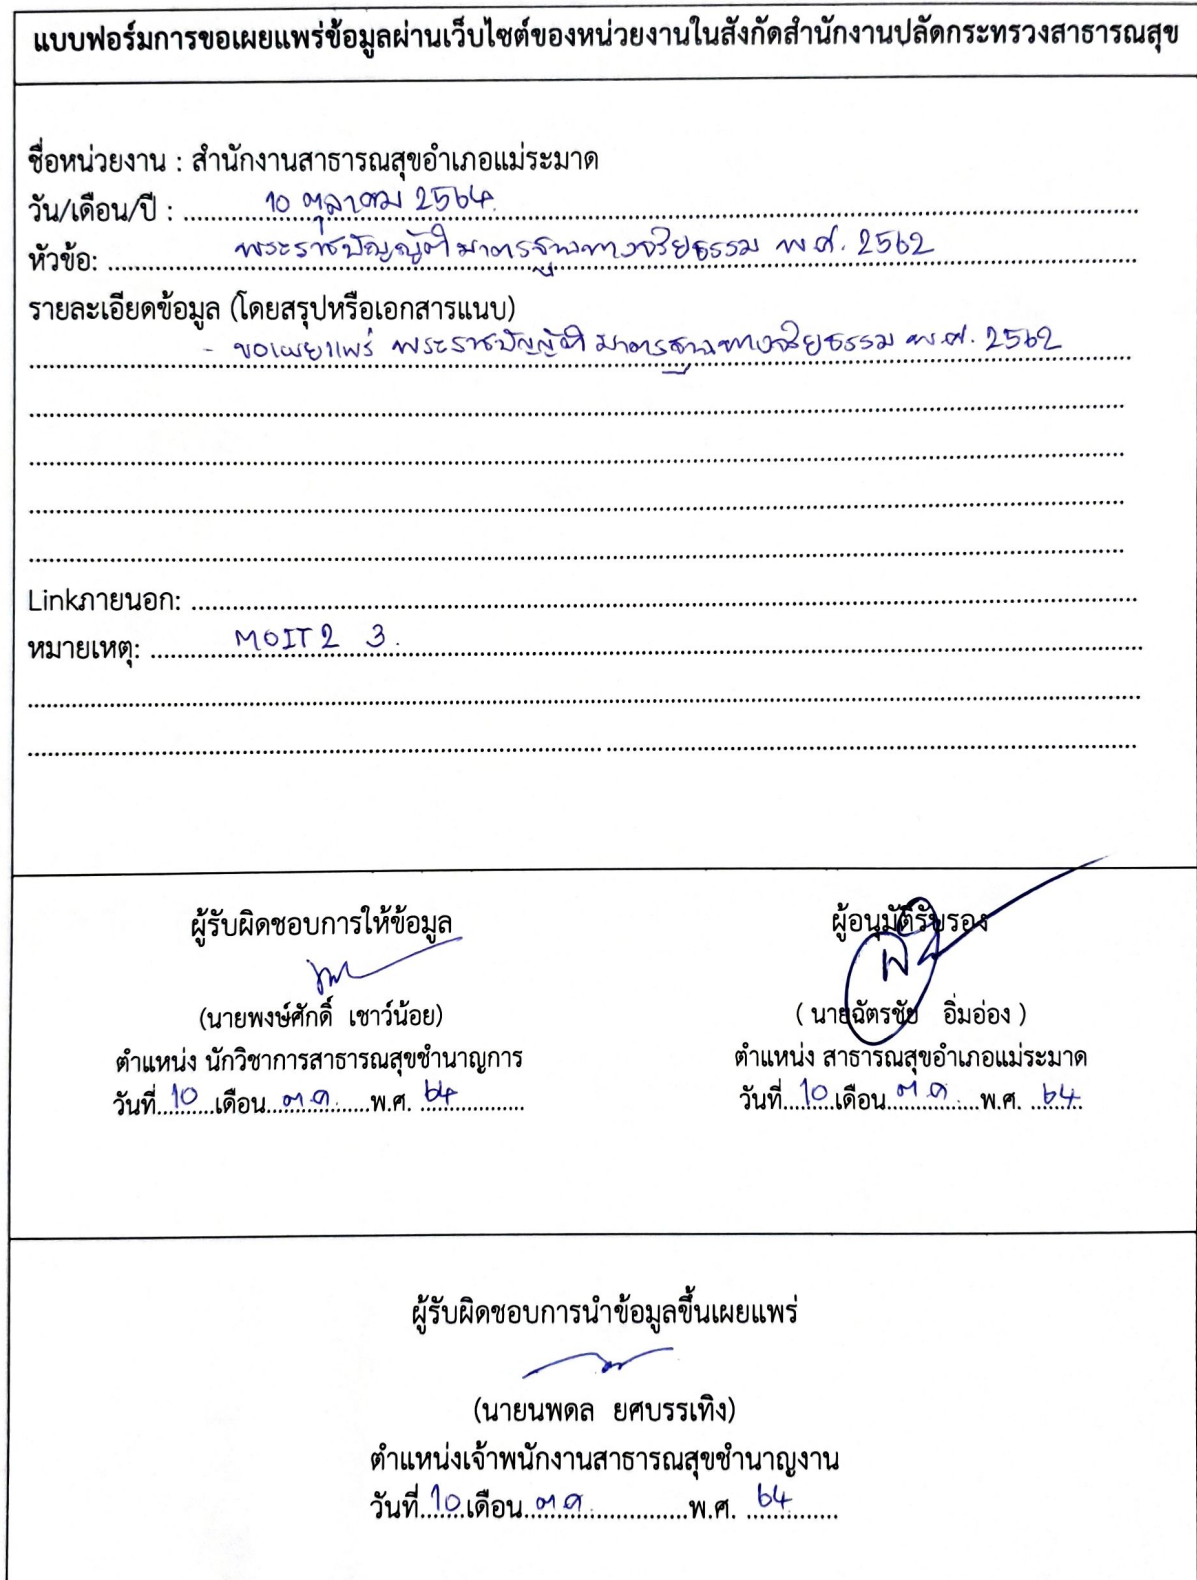 แบบฟอร์มการขอเผยแพร่ข้อมูลผ่านเว็บไซต์ของหน่วยงานในสังกัดสำนักงานปลัดกระทรวงสาธารณสุข
ชื่อหน่วยงาน : สำนักงานสาธารณสุขอำเภอแม่ระมาด
วัน/เดือน/ปี : 10 ตุลาคม 2564.
หัวข้อ: พระราชบัญญัติ มาตรฐานทางจริยธรรม พ.ศ. 2562
รายละเอียดข้อมูล (โดยสรุปหรือเอกสารแนบ)
- ขอเผยแพร่ พระราชบัญญัติ มาตรฐานทางจริยธรรม พ.ศ. 2562
Linkภายนอก:
หมายเหตุ: MOIT2 3.
ผู้รับผิดชอบการให้ข้อมูล ผู้อนุมัติรับรอง
(นายพงษ์ศักดิ์ เชาว์น้อย) ( นายฉัตรชัย อิ่มอ่อง )
ตำแหน่ง นักวิชาการสาธารณสุขชำนาญการ ตำแหน่ง สาธารณสุขอำเภอแม่ระมาด
วันที่ 10 เดือน ต.ค. พ.ศ. 64 วันที่ 10 เดือน ต.ค. พ.ศ. 64
ผู้รับผิดชอบการนำข้อมูลขึ้นเผยแพร่
(นายนพดล ยศบรรเทิง)
ตำแหน่งเจ้าพนักงานสาธารณสุขชำนาญงาน
วันที่ 10 เดือน ต.ค. พ.ศ. 64